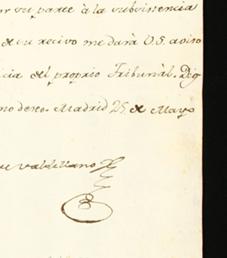 or su parte à la subsistencia
de su recivo me dará V.S. aviso
cia del propio Tribunàl. Dios
Madrid 25 de Mayo
Valdellano